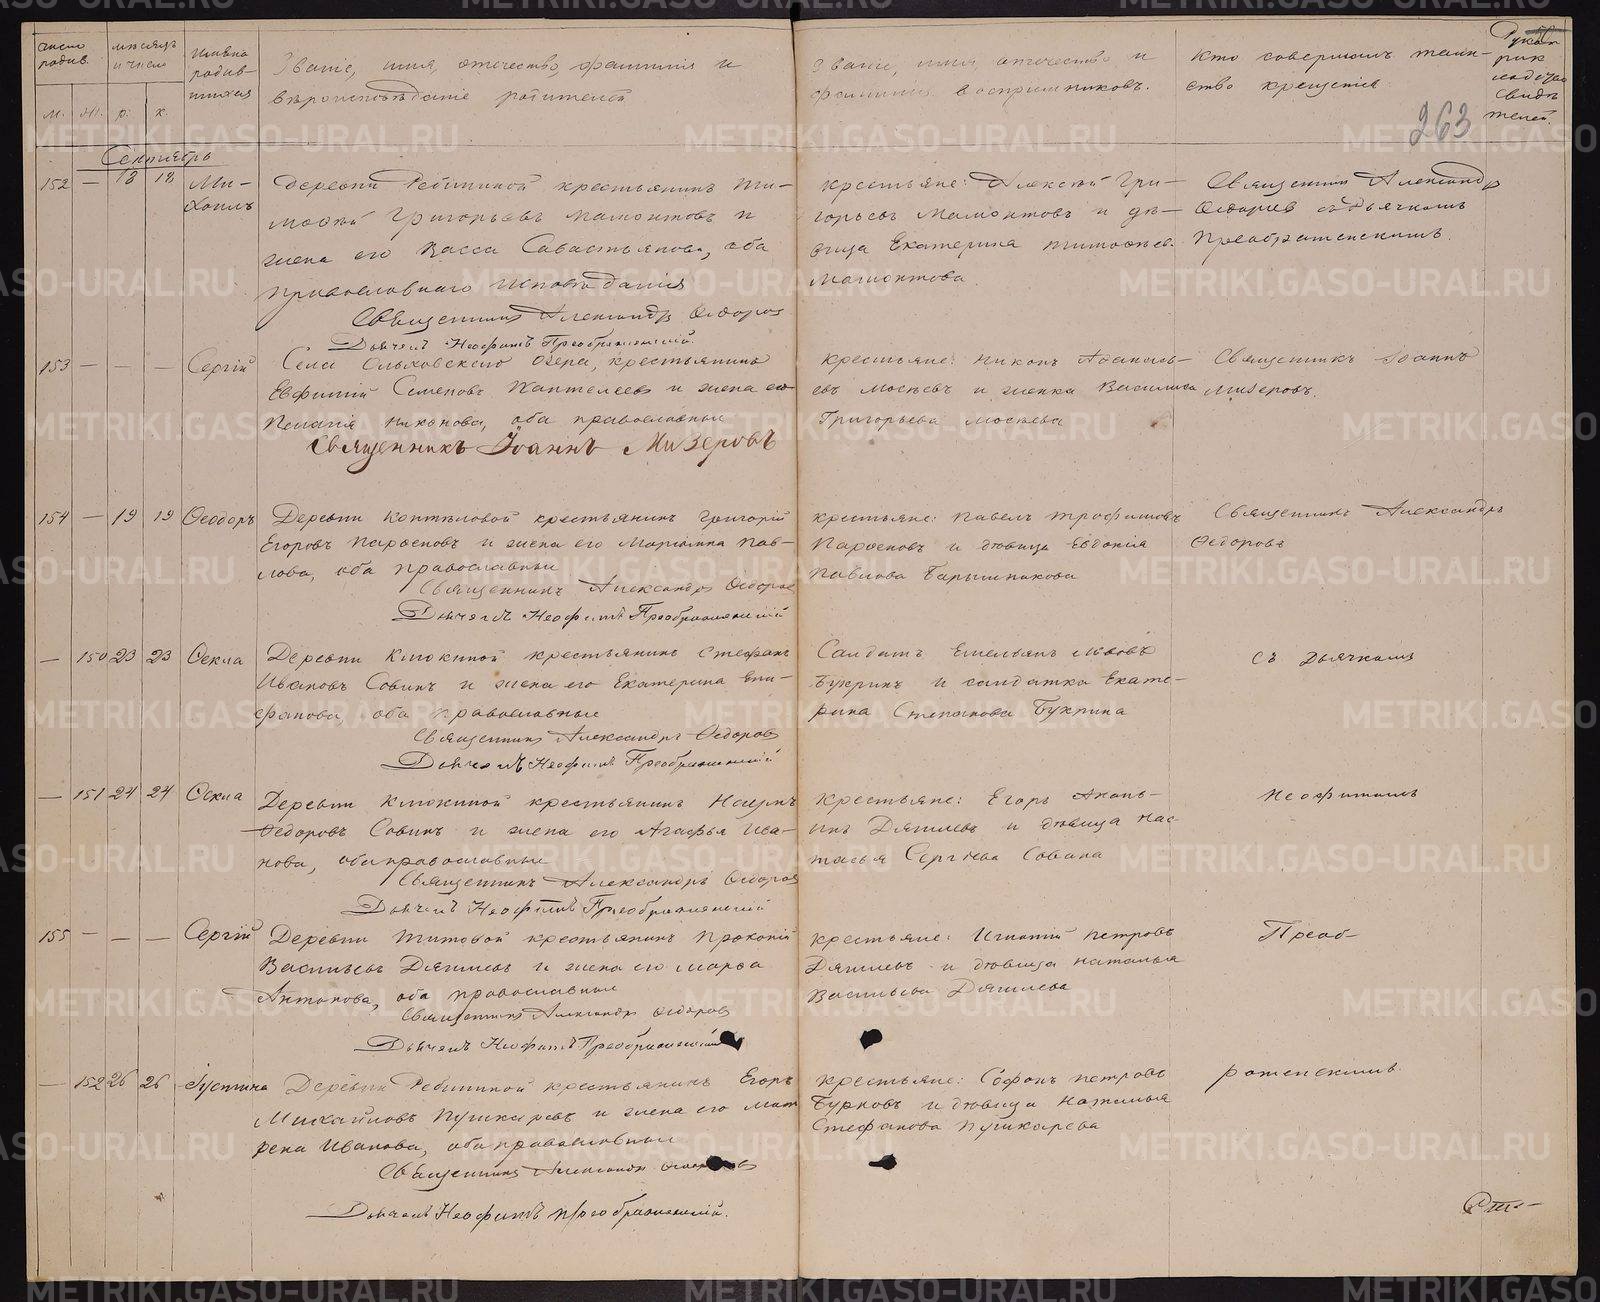 число родив.
мѣсяцъ и число
имена родив-шихся
Званіе, имя, отчество, фамилія и
вѣроисповѣданіе родителей
Званіе, имя, отчество и
фамилія воспріемниковъ.
Кто совершалъ таин-
ство крещенія
м. ж. р. к.
263
Сентябрь
152 — 18 18 Ми-
хаилъ
деревни Ребининой крестьянинъ Ти-
моѳей Григорьевъ Мамонтовъ и
жена его Васса Савастьянова, оба
православнаго исповѣданія
Священникъ Александръ Ѳедоровъ
Дьячекъ Неофитъ Преображенскій.
крестьяне: Алексѣй Гри-
горьевъ Мамонтовъ и дѣ-
вица Екатерина Тимоѳеев.
Мамонтова
Священникъ Александръ
Ѳедоровъ съ дьячкомъ
Преображенскимъ.
153 — — — Сергій
Села Ольховскаго Озера, крестьянинъ
Евфимій Семеновъ Пантелеевъ и жена его
Пелагія Никонова, оба православные
Священникъ Іоаннъ Мизеровъ
крестьяне: Никонъ Аѳанась-
евъ Мосѣевъ и женка Василиса
Григорьева Мосѣева
Священникъ Іоаннъ
Мизеровъ.
154 — 19 19 Ѳеодоръ
Деревни Коптѣловой крестьянинъ Григорій
Егоровъ Парѳеновъ и жена его Маріамна Пав-
лова, оба православные
Священникъ Александръ Ѳедоровъ
Дьячекъ Неофитъ Преображенскій
крестьяне: Павелъ Трофимовъ
Парѳеновъ и дѣвица Евдокія
Павлова Барышникова
Священникъ Александръ
Ѳедоровъ
— 150 23 23 Ѳекла
Деревни Клюкиной крестьянинъ Стефанъ
Ивановъ Совинъ и жена его Екатерина Епи-
фанова, оба православные
Священникъ Александръ Ѳедоровъ
Дьячекъ Неофитъ Преображенскій
Солдатъ Емельянъ Львовъ
Букринъ и солдатка Екате-
рина Степанова Букрина
съ дьячкомъ
— 151 24 24 Ѳекла
Деревни Клюкиной крестьянинъ Наумъ
Ѳедоровъ Совинъ и жена его Агафья Ива-
нова, оба православные
Священникъ Александръ Ѳедоровъ
Дьячекъ Неофитъ Преображенскій
крестьяне: Егоръ
Дягилевъ и дѣвица Нас-
тасья Сергѣева Совина
Неофитомъ
155 — — — Сергій
Деревни Титовой крестьянинъ Прокопій
Васильевъ Дягилевъ и жена его Марѳа
Антонова, оба православные
Священникъ Александръ Ѳедоровъ
Дьячекъ Неофитъ Преображенскій
крестьяне: Игнатій Петровъ
Дягилевъ и дѣвица Наталья
Васильева Дягилева
Преоб-
— 152 26 26 Іустина
Деревни Ребининой крестьянинъ Егоръ
Михайловъ Пушкаревъ и жена его Мат
рена Иванова, оба православные
Священникъ Александръ Ѳедоровъ
Дьячекъ Неофитъ Преображенскій.
крестьяне: Софонъ Петровъ
Бурковъ и дѣвица Наталья
Стефанова Пушкарева
раженскимъ.
METRIKI.GASO-URAL.RU